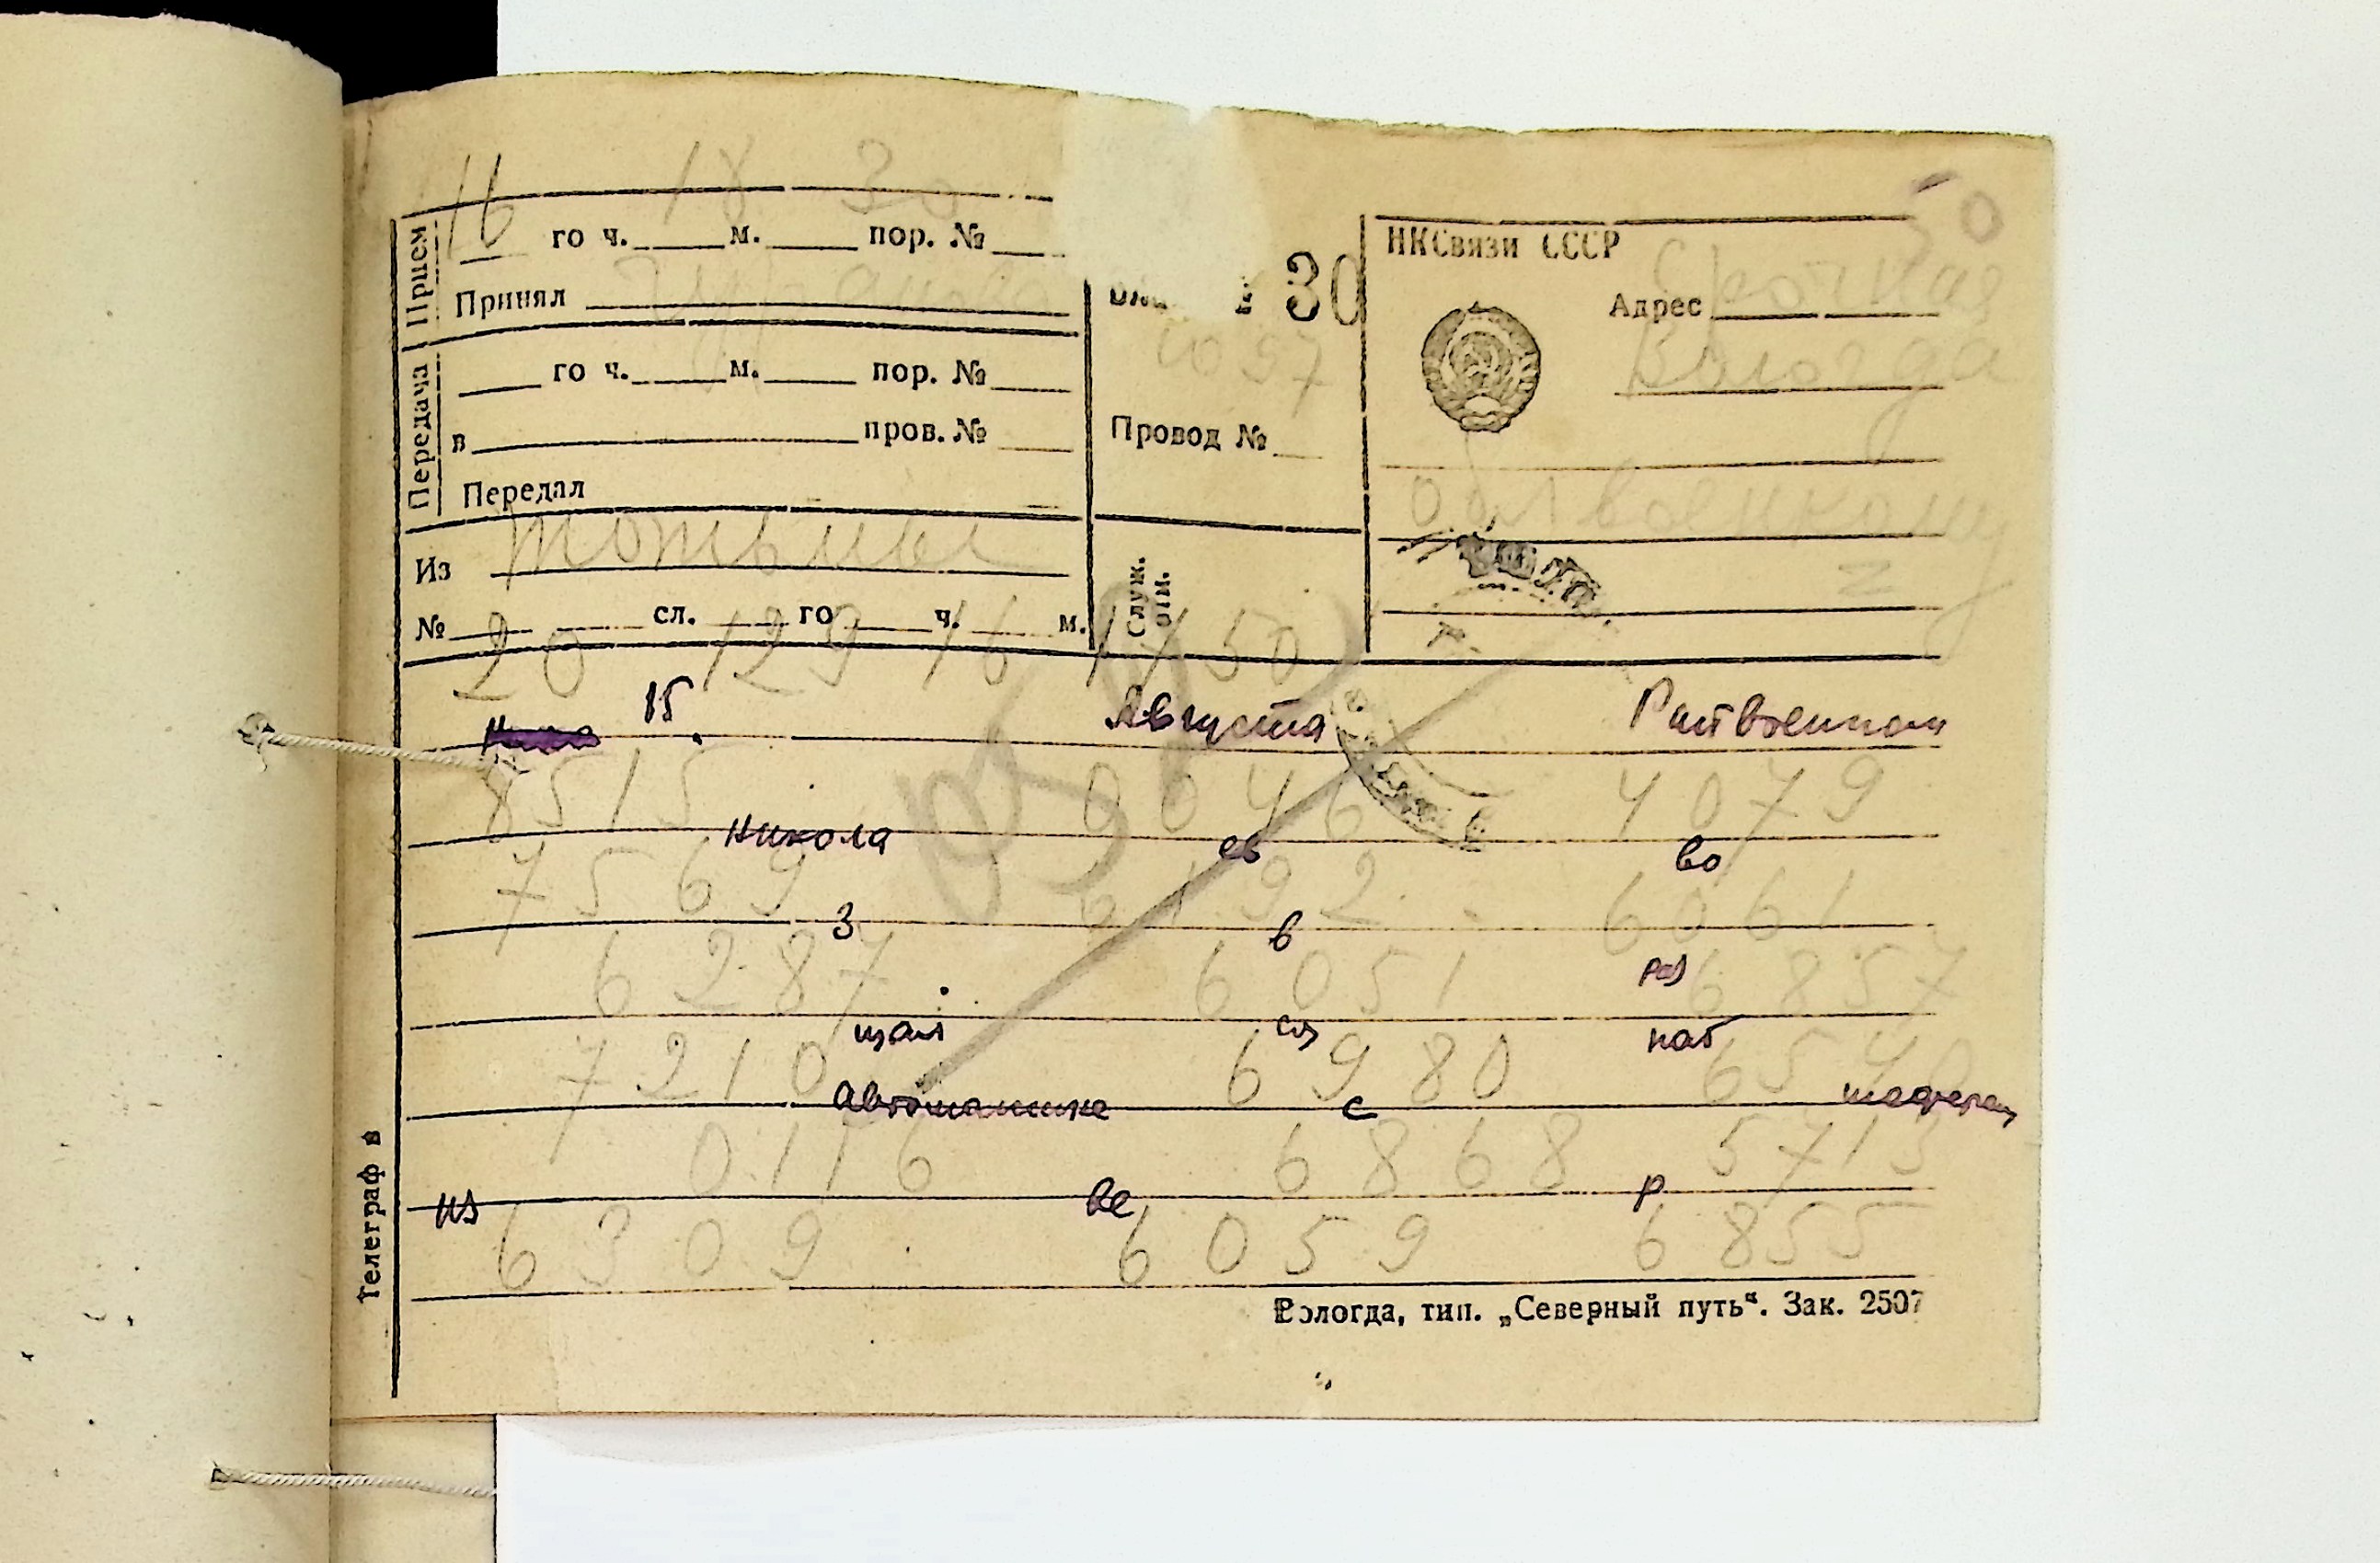 50
16 18 30
Прием го ч. м. пор. №
Принял
30
1097
НКСвязи СССР
Адрес Срочная
Вологда
Передача го ч. м. пор. №
в пров. №
Провод №
Передал
облвоенкому
Из Тотьмы
Служ. отм.
№ сл. го ч. м.
20 129 16 1750
15 Августа Райвоенком
8515 0046 4079
Никола ев во
7569 6192 6061
з в раз
6287 6051 6857
щал сь наб
7210 6980 6540
автомашине с шофером
0116 6868 5713
из ве р
6309 6059 6855
Телеграф в
Вологда, тип. „Северный путь“. Зак. 2507